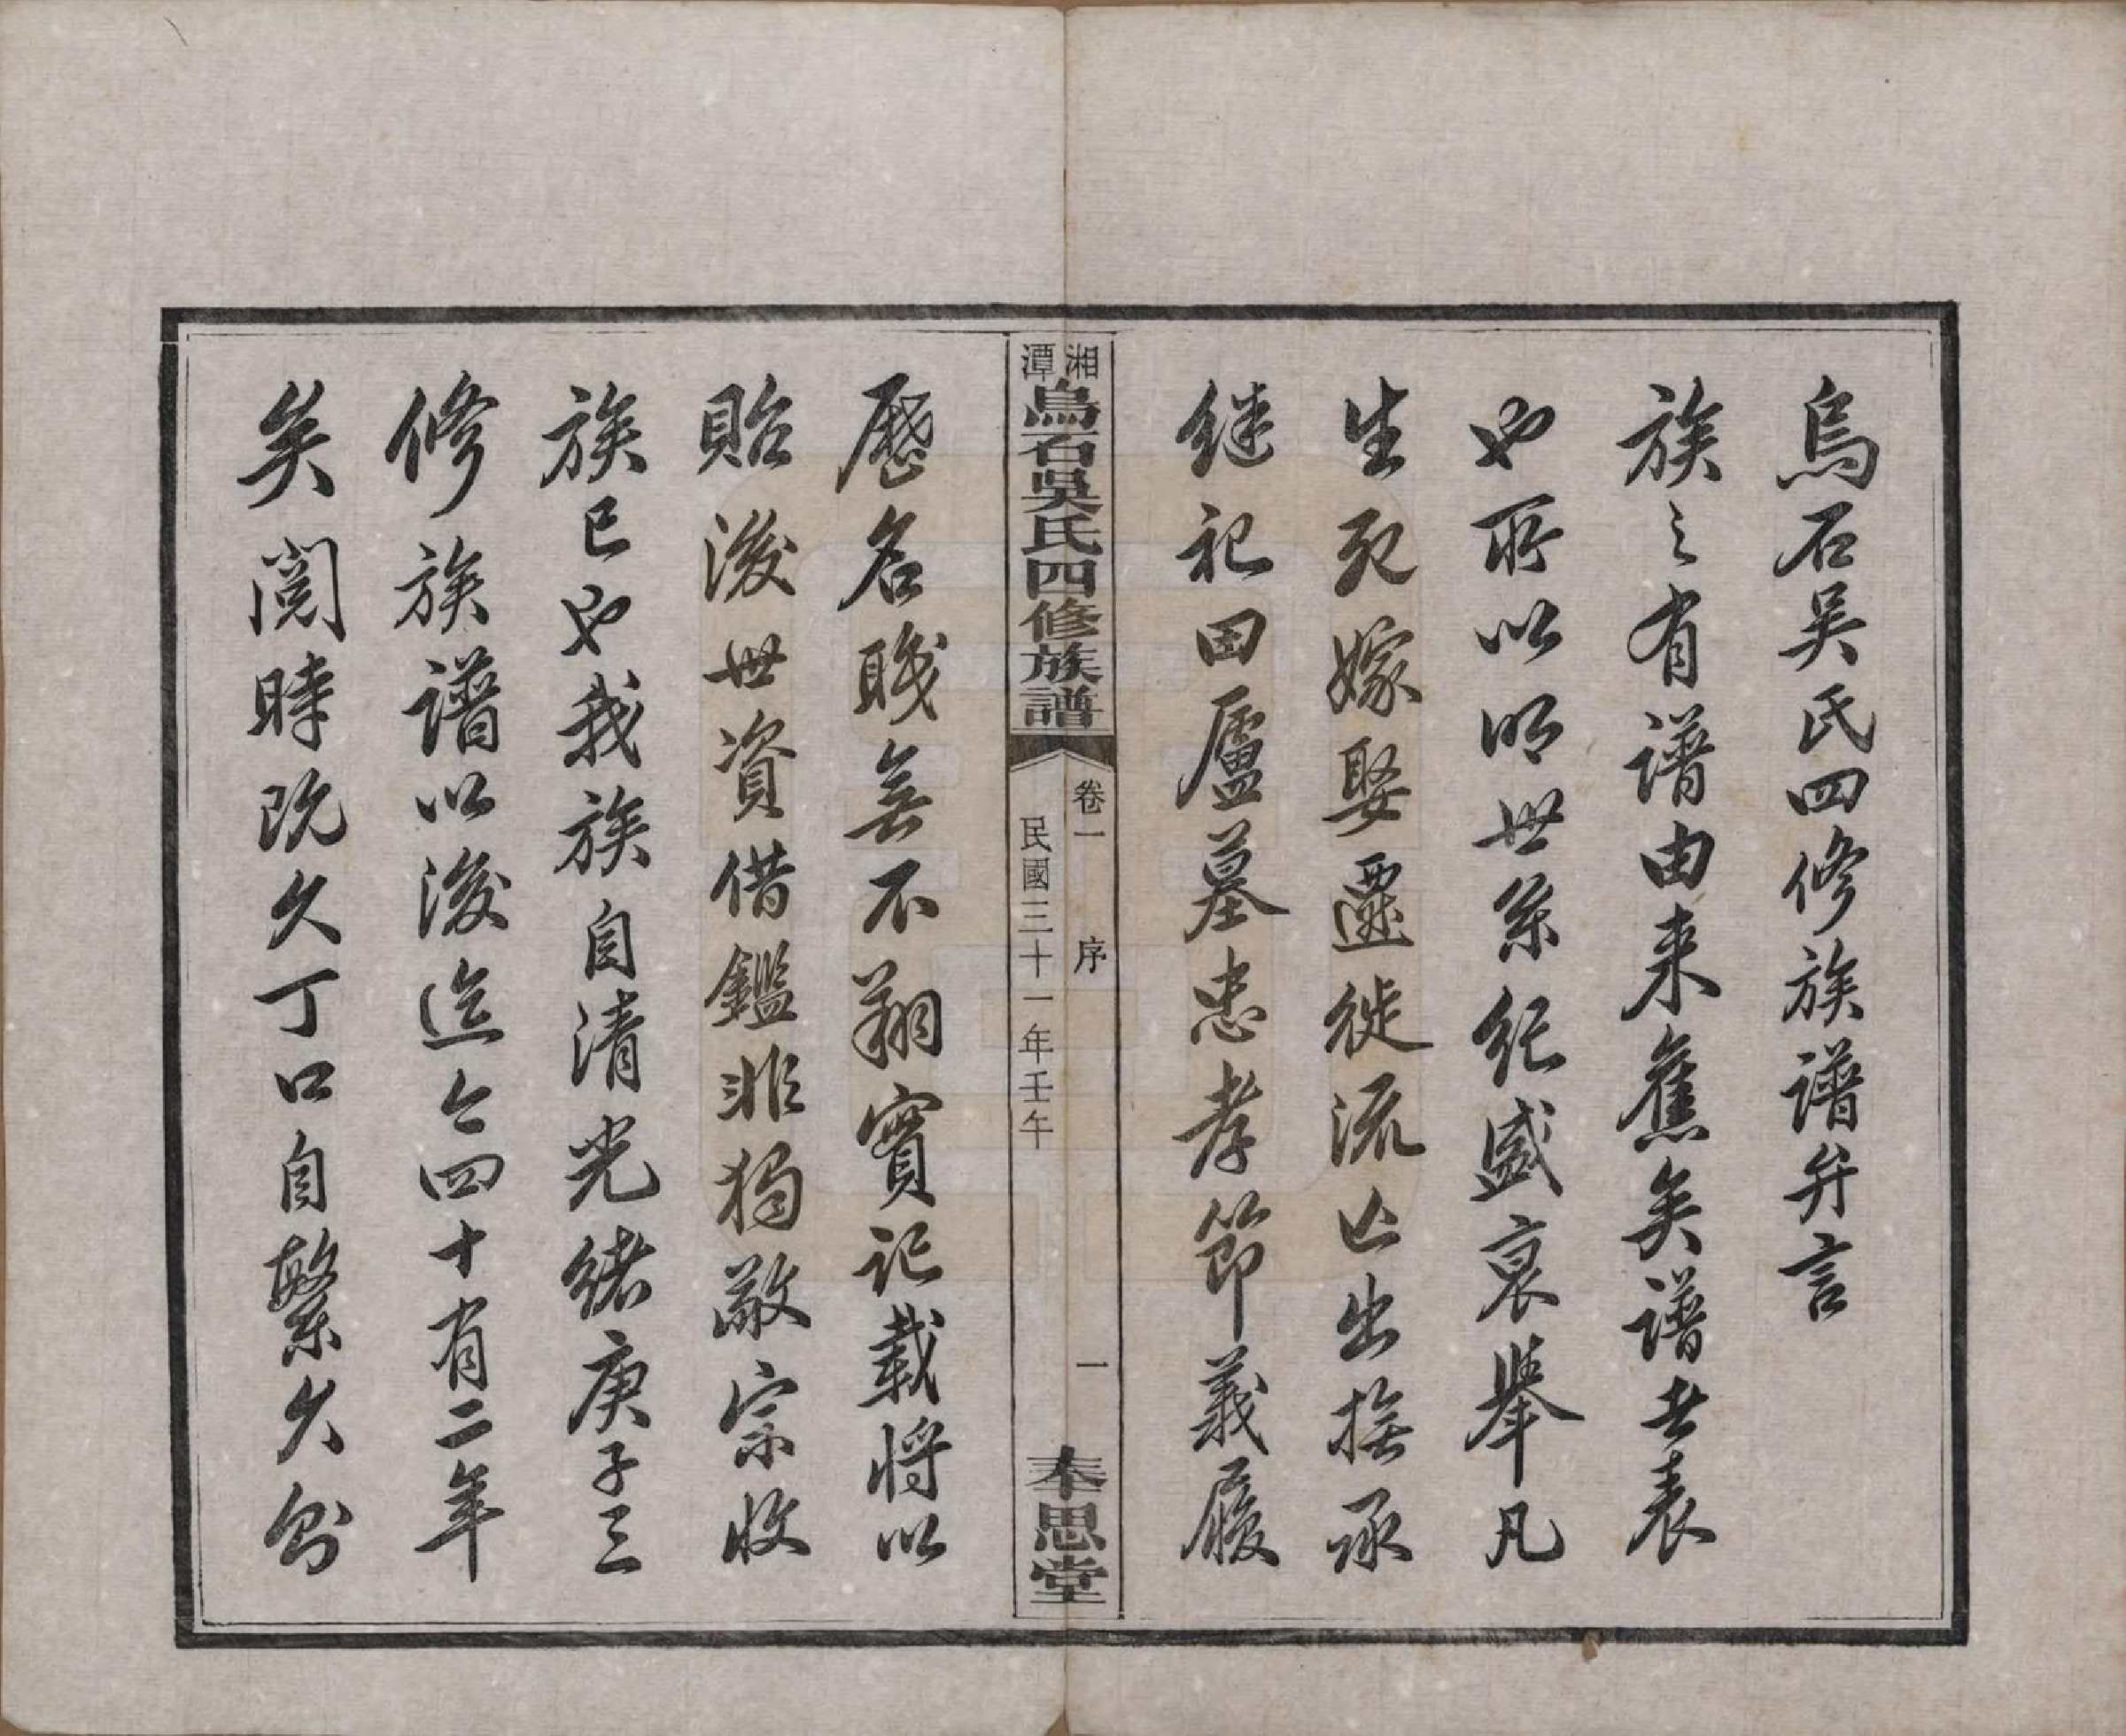 烏石吳氏四修族譜弁言
族之有譜由来舊矣譜者表
也所以明世系紀盛衰舉凡
生死嫁娶遷徙流亡出撫承
继祀田廬墓忠孝節義履
湘潭烏石吳氏四修族譜
卷一 序 一
民國三十一年壬午
奉思堂
歷名職無不翔實記載将以
貽後世資借鑑非獨敬宗收
族已也我族自清光緒庚子三
修族譜以後迄今四十有二年
矣閱時既久丁口自繁久